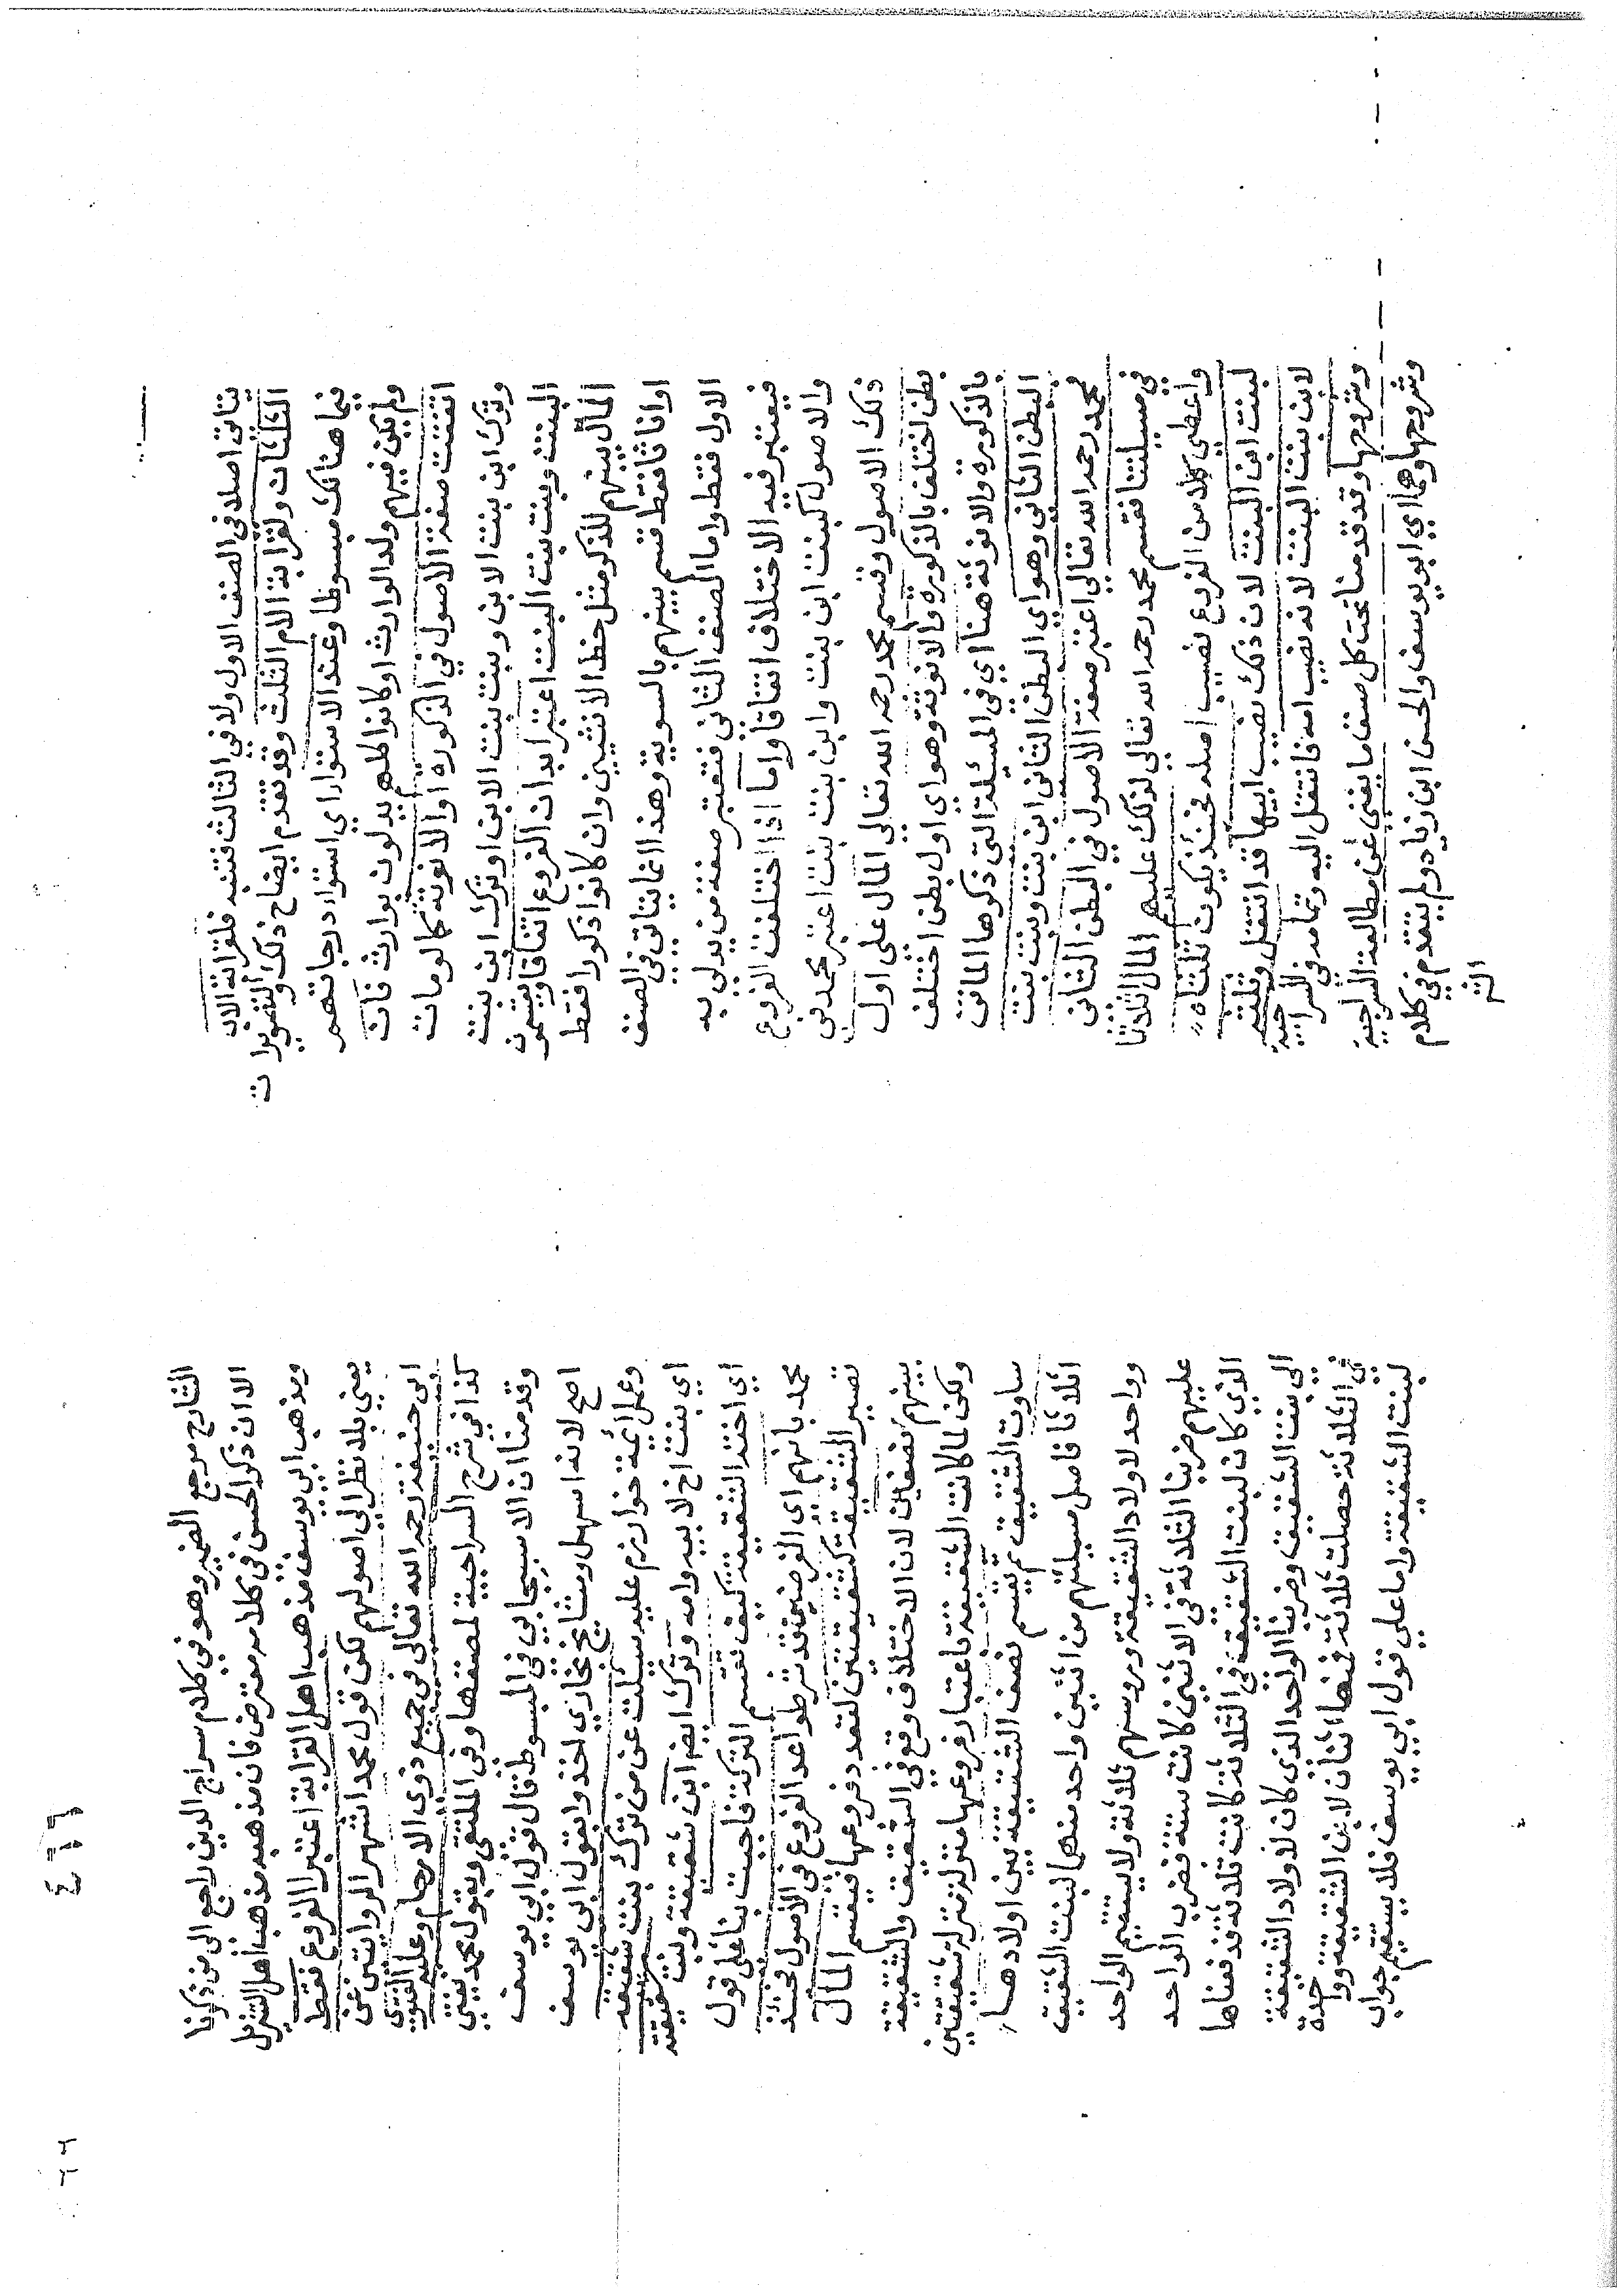 يتاتى اصلا في الصنف الاول ولا في الثالث فتنبه فلقرابة الاب
الثلثان ولقرابة الام الثلث وقد تقدم ايضاح ذلك والتصويرات
فيما هنالك مبسوطا وعند الاستواء اي استواء درجاتهم
ولم يكن فيهم ولد الوارث او كانوا كلهم يدلون بوارث فان
اتفقت صفة الاصول في الذكورة او الانوثة كما لو مات
وترك ابن بنت الابن وبنت بنت الابن او ترك ابن بنت
البنت وبنت بنت البنت اعتبر ابدان الفروع اتفاقا ويقسمون
المال بينهم للذكر مثل حظ الانثيين وان كانوا ذكورا فقط
او اناثا فقط قسم بينهم بالسوية وهذا انما يتاتى في الصنف
الاول فقط واما الصنف الثاني فتعتبر صفة من يدلي به
فيعتبر فيه الاختلاف اتفاقا واما اذا اختلفت الفروع
والاصول كبنت ابن بنت وابن بنت بنت اعتبر محمد في
ذلك الاصول وقسم محمد رحمه الله تعالى المال على اول
بطن اختلف بالذكورة والانوثة وهو اي اول بطن اختلف
بالذكورة والانوثة هنا اي في المسئلة التي ذكرها الماتن
البطن الثاني وهو اي البطن الثاني ابن بنت وبنت بنت
فمحمد رحمه الله تعالى اعتبر صفة الاصول في البطن الثاني
في مسيلتنا فقسم محمد رحمه الله تعالى لذلك عليهم المال اثلاثا
واعطي كلا من الفروع نصيب اصله فحينئذ يكون ثلثاه
لبنت ابن البنت لان ذلك نصيب ابيها قد انتقل وثلثه
لابن بنت البنت لانه نصيب امه فانتقل اليه وتمامه في السراجية
وشروحها وقد قدمنا تحت كل صنف ما يغني عن مطالعة السراجية
وشروحها وهما اي ابو يوسف والحسن ابن زياد ولم يتقدم في كلام
الش
٤٦٦
الشارح مرجع الضمير وهو في كلام سراج الدين راجع الى من ذكرنا
الا ان ذكر الحسن في كلامه معترض فان مذهبه مذهب اهل التنزيل
ومذهب ابي يوسف مذهب اهل القرابة اعتبرا الفروع فقط
يعني بلا نظر الى اصولهم لكن قول محمد اشهر الروايتين عن
ابي حنيفة رحمه الله تعالى في جميع ذوي الارحام وعليه الفتوى
كذا في شرح السراجية لمصنفها وفي الملتقى وبقول محمد يفتى
وقدمنا ان الاسبيجابي في المبسوط قال قول ابي يوسف
اصح لانه اسهل ومشايخ بخارى اخذوا بقول ابي يوسف
وعمل ائمة خوارزم عليه سيلت عن من ترك بنت شقيقه
اي بنت اخ لابيه وامه وترك ايضا ابن شقيقته وبنت شقيقته
اي اخته الشقيقة كيف تقسم التركة فاجبت بنا على قول
محمد بانهم اي الفرضيين قد شرطوا عد الفروع في الاصول فحينئذ
تصير الشقيقة كشقيقتين لتعدد فروعها فيقسم المال
بينهم نصفين لان الاختلاف وقع في الشقيق والشقيقة
ولكن لما كانت الشقيقة باعتبار فروعها منزلة منزلة شقيقتين
ساوت الشقيق ثم يقسم نصف الشقيقة بين اولادها
اثلاثا فاصل مسيلتهم من اثنين واحد منهما لبنت الشقيق
وواحد لاولاد الشقيقة وروسهم ثلاثة ولا يستقيم الواحد
عليهم ضربنا الثلاثة في الاثنين كانت ستة فضرب الواحد
الذي كان لبنت الشقيق في الثلاثة كانت ثلاثة فدفعناها
الى بنت الشقيق وضربنا الواحد الذي كان لاولاد الشقيقة
في الثلاثة حصلت ثلاثة فمنها اثنان لابن الشقيقة وواحدة
لبنت الشقيقة واما على قول ابي يوسف فلا يستقيم جواب